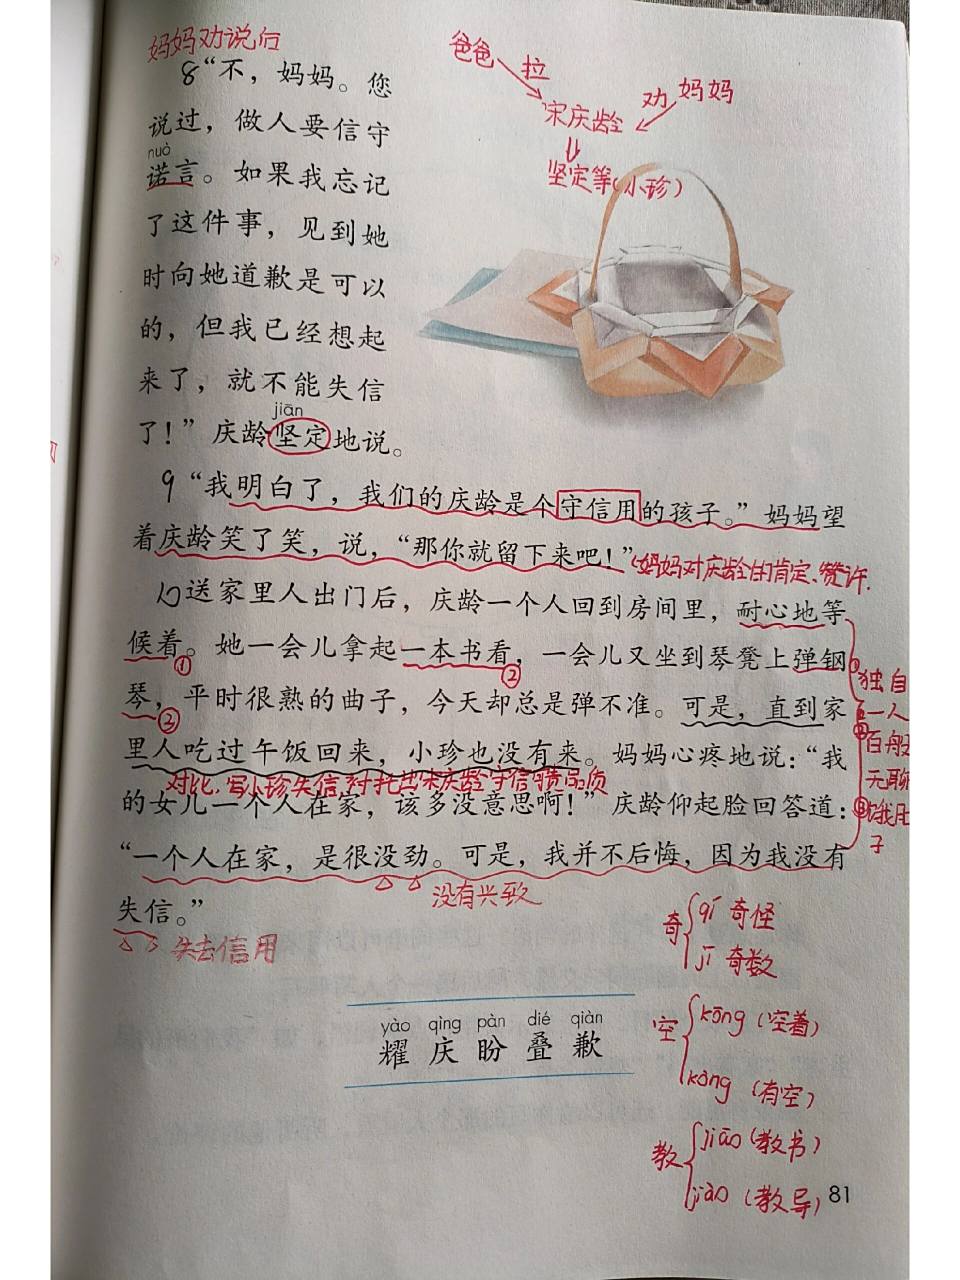 妈妈劝说后
爸爸 拉
劝 妈妈
宋庆龄
坚定等(小珍)
8“不，妈妈。您
说过，做人要信守
nuò
诺言。如果我忘记
了这件事，见到她
时向她道歉是可以
的，但我已经想起
来了，就不能失信
jiān
了！”庆龄坚定地说。
9“我明白了，我们的庆龄是个守信用的孩子。”妈妈望
着庆龄笑了笑，说，“那你就留下来吧！”
妈妈对庆龄的肯定、赞许.
10送家里人出门后，庆龄一个人回到房间里，耐心地等
候着。她一会儿拿起一本书看，一会儿又坐到琴凳上弹钢
① ② ③
琴，平时很熟的曲子，今天却总是弹不准。可是，直到家
里人吃过午饭回来，小珍也没有来。妈妈心疼地说：“我
对比，写小珍失信衬托出宋庆龄守信的品质
的女儿一个人在家，该多没意思啊！”庆龄仰起脸回答道：
“一个人在家，是很没劲。可是，我并不后悔，因为我没有
没有兴致
失信。”
失去信用
① 独自
一人
② 百般
无聊
③ 饿肚
子
奇 qí 奇怪
jī 奇数
空 kōng (空着)
kòng (有空)
教 jiāo (教书)
jiào (教导)
yào qìng pàn dié qiàn
耀 庆 盼 叠 歉
81